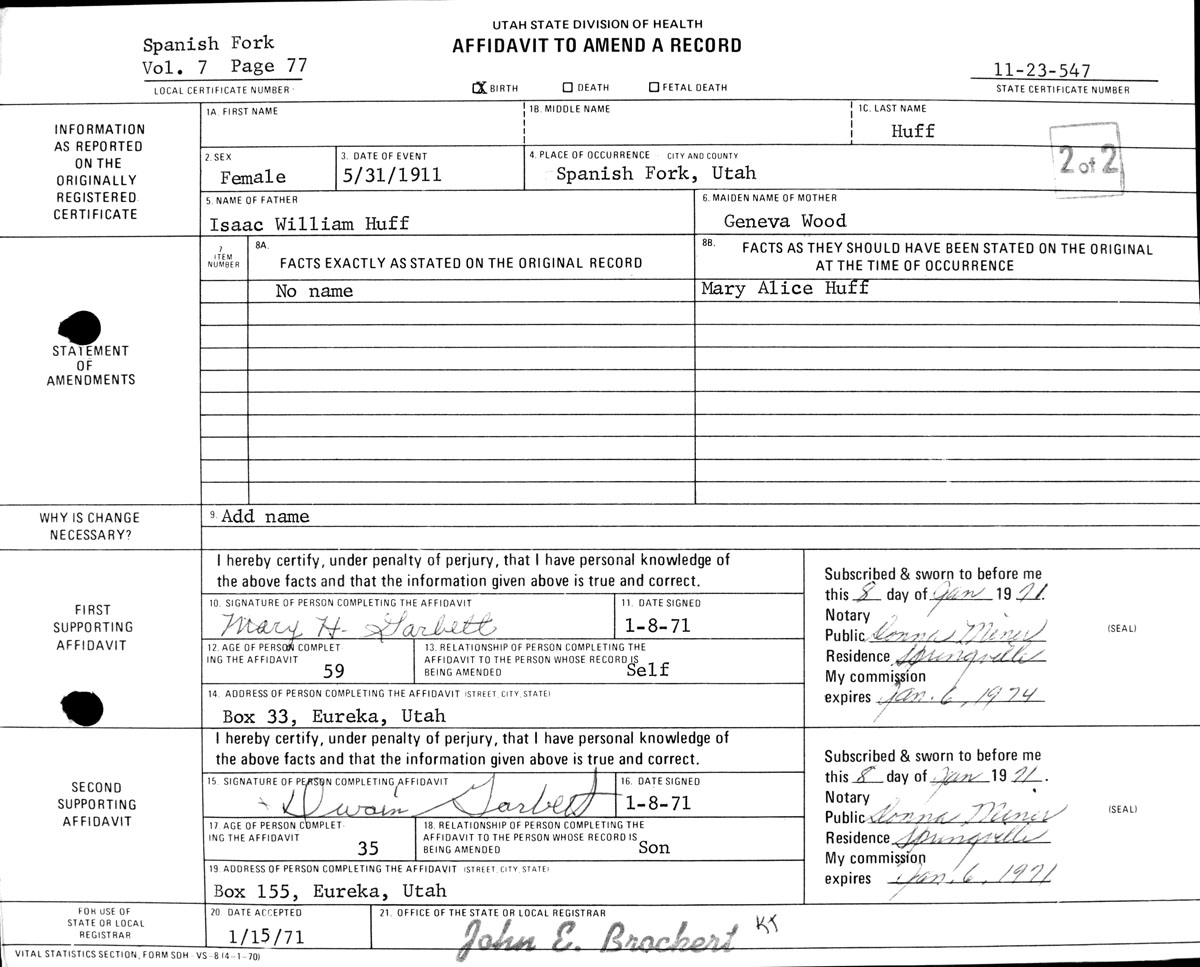 UTAH STATE DIVISION OF HEALTH
AFFIDAVIT TO AMEND A RECORD
Spanish Fork
Vol. 7 Page 77
LOCAL CERTIFICATE NUMBER
X BIRTH DEATH FETAL DEATH
11-23-547
STATE CERTIFICATE NUMBER
INFORMATION
AS REPORTED
ON THE
ORIGINALLY
REGISTERED
CERTIFICATE
1A. FIRST NAME
1B. MIDDLE NAME
1C. LAST NAME
Huff
2. SEX
Female
3. DATE OF EVENT
5/31/1911
4. PLACE OF OCCURRENCE CITY AND COUNTY
Spanish Fork, Utah
2 of 2
5. NAME OF FATHER
Isaac William Huff
6. MAIDEN NAME OF MOTHER
Geneva Wood
STATEMENT
OF
AMENDMENTS
7
ITEM
NUMBER
8A.
FACTS EXACTLY AS STATED ON THE ORIGINAL RECORD
8B. FACTS AS THEY SHOULD HAVE BEEN STATED ON THE ORIGINAL
AT THE TIME OF OCCURRENCE
No name
Mary Alice Huff
WHY IS CHANGE
NECESSARY?
9. Add name
FIRST
SUPPORTING
AFFIDAVIT
I hereby certify, under penalty of perjury, that I have personal knowledge of
the above facts and that the information given above is true and correct.
10. SIGNATURE OF PERSON COMPLETING THE AFFIDAVIT
Mary H. Garbett
11. DATE SIGNED
1-8-71
12. AGE OF PERSON COMPLET
ING THE AFFIDAVIT
59
13. RELATIONSHIP OF PERSON COMPLETING THE
AFFIDAVIT TO THE PERSON WHOSE RECORD IS
BEING AMENDED
Self
14. ADDRESS OF PERSON COMPLETING THE AFFIDAVIT (STREET, CITY, STATE)
Box 33, Eureka, Utah
Subscribed & sworn to before me
this 8 day of Jan 1971.
Notary
Public Donna Miner
Residence Springville
My commission
expires Jan. 6, 1974
(SEAL)
SECOND
SUPPORTING
AFFIDAVIT
I hereby certify, under penalty of perjury, that I have personal knowledge of
the above facts and that the information given above is true and correct.
15. SIGNATURE OF PERSON COMPLETING AFFIDAVIT
Dwain Garbett
16. DATE SIGNED
1-8-71
17. AGE OF PERSON COMPLET-
ING THE AFFIDAVIT
35
18. RELATIONSHIP OF PERSON COMPLETING THE
AFFIDAVIT TO THE PERSON WHOSE RECORD IS
BEING AMENDED
Son
19. ADDRESS OF PERSON COMPLETING THE AFFIDAVIT (STREET, CITY, STATE)
Box 155, Eureka, Utah
Subscribed & sworn to before me
this 8 day of Jan 1971.
Notary
Public Donna Miner
Residence Springville
My commission
expires Jan. 6, 1971
(SEAL)
FOR USE OF
STATE OR LOCAL
REGISTRAR
20. DATE ACCEPTED
1/15/71
21. OFFICE OF THE STATE OR LOCAL REGISTRAR
John E. Brockert KT
VITAL STATISTICS SECTION, FORM SDH - VS -8 (4-1-70)